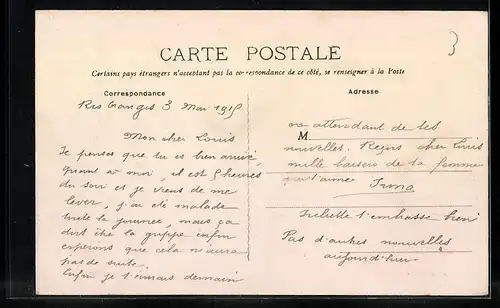 3
CARTE POSTALE
Certains pays étrangers n'acceptant pas la correspondance de ce côté, se renseigner à la Poste
Correspondance
Ris Orangis 3 Mai 1915
Mon cher Louis
Je penses que tu es bien arrivé,
quant a moi, il est 8 heures
du soir et je viens de me
lever, j'ai été malade
toute la journée, mais ça
doit être la grippe enfin
esperons que cela n'aura
pas de suite.
Enfin je t'écrirais demain
Adresse
M
en attendant de tes
nouvelles. Reçois cher Louis
mille baisers de ta femme
qui t'aime Irma
Juliette t'embrasse bien
Pas d'autres nouvelles
aujourd'hui